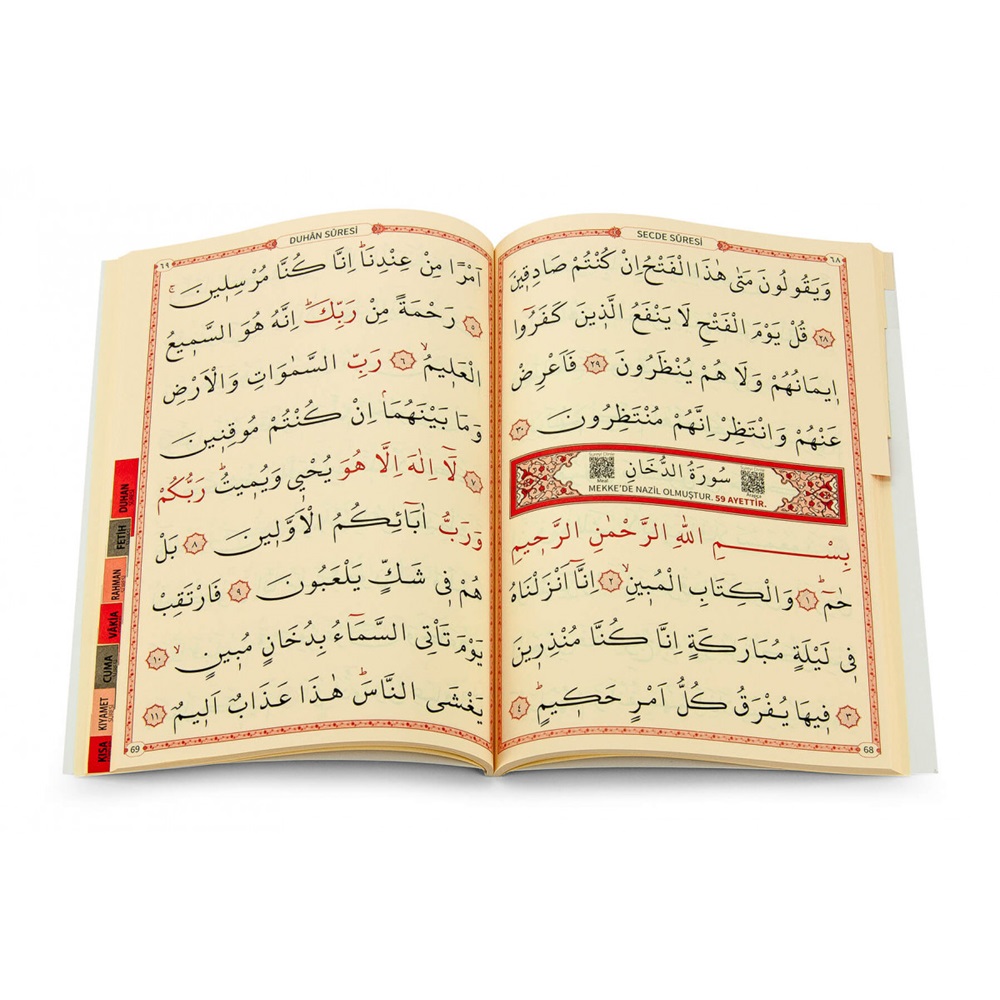 SECDE SÛRESİ
٦٨
وَيَقُولُونَ مَتٰى هٰذَا الْفَتْحُ اِنْ كُنْتُمْ صَادِقٖينَ
﴿٢٨﴾ قُلْ يَوْمَ الْفَتْحِ لَا يَنْفَعُ الَّذٖينَ كَفَرُٓوا
اٖيمَانُهُمْ وَلَا هُمْ يُنْظَرُونَ ﴿٢٩﴾ فَاَعْرِضْ
عَنْهُمْ وَانْتَظِرْ اِنَّهُمْ مُنْتَظِرُونَ ﴿٣٠﴾
سُورَةُ الدُّخَانِ
MEKKE'DE NAZİL OLMUŞTUR. 59 AYETTİR.
بِسْمِ اللّٰهِ الرَّحْمٰنِ الرَّحٖيمِ
حٰمٓ ﴿١﴾ وَالْكِتَابِ الْمُبٖينِۙ ﴿٢﴾ اِنَّٓا اَنْزَلْنَاهُ
فٖى لَيْلَةٍ مُبَارَكَةٍ اِنَّا كُنَّا مُنْذِرٖينَ
﴿٣﴾ فٖيهَا يُفْرَقُ كُلُّ اَمْرٍ حَكٖيمٍۜ ﴿٤﴾
68
DUHÂN SÛRESİ
٦٩
اَمْرًا مِنْ عِنْدِنَاۜ اِنَّا كُنَّا مُرْسِلٖينَۚ
﴿٥﴾ رَحْمَةً مِنْ رَبِّكَۜ اِنَّهُ هُوَ السَّمٖيعُ
الْعَلٖيمُۙ ﴿٦﴾ رَبِّ السَّمٰوَاتِ وَالْاَرْضِ
وَمَا بَيْنَهُمَاۢ اِنْ كُنْتُمْ مُوقِنٖينَ
﴿٧﴾ لَٓا اِلٰهَ اِلَّا هُوَ يُحْيٖى وَيُمٖيتُۜ رَبُّكُمْ
وَرَبُّ اٰبَٓائِكُمُ الْاَوَّلٖينَ ﴿٨﴾ بَلْ
هُمْ فٖى شَكٍّ يَلْعَبُونَ ﴿٩﴾ فَارْتَقِبْ
يَوْمَ تَاْتِى السَّمَٓاءُ بِدُخَانٍ مُبٖينٍۙ ﴿١٠﴾
يَغْشَى النَّاسَۜ هٰذَا عَذَابٌ اَلٖيمٌ ﴿١١﴾
69
DUHAN
FETİH
RAHMAN
VÂKIA
CUMA
KIYAMET
KISA